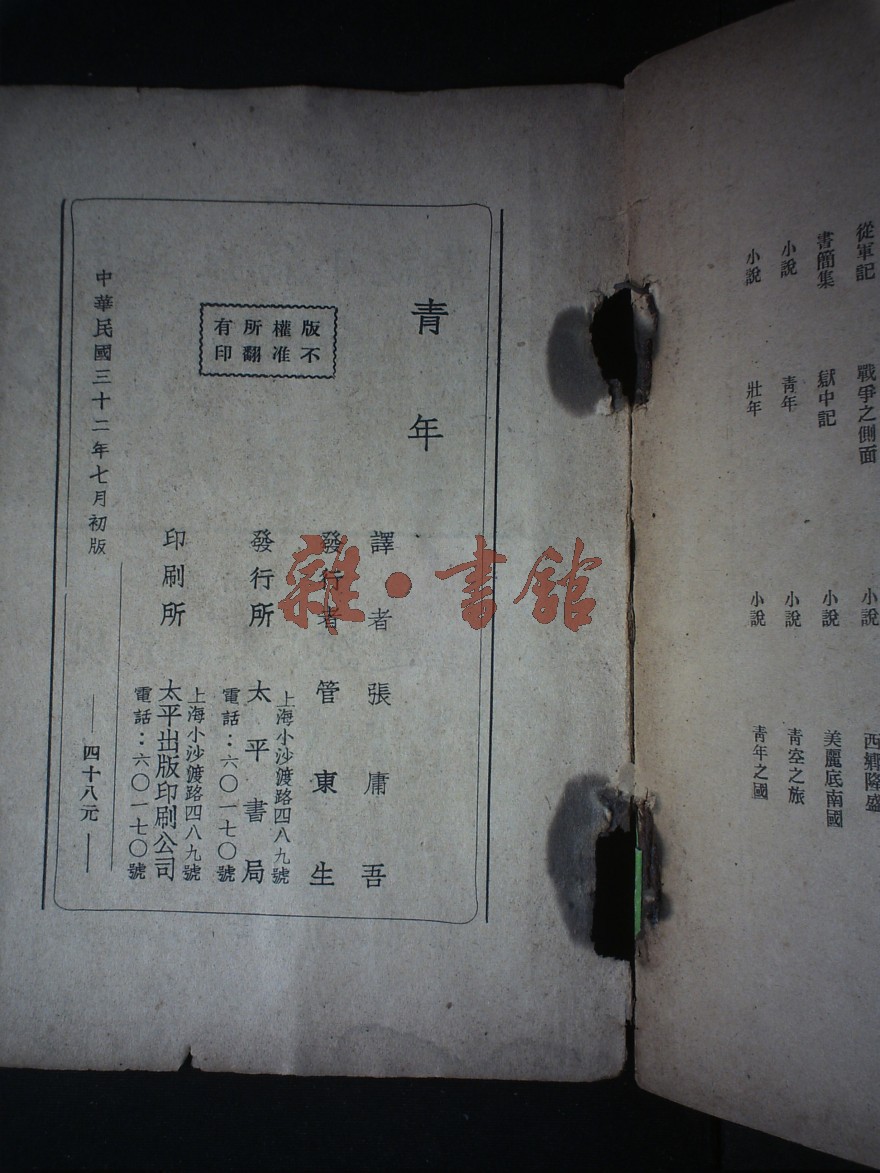 從軍記　戰爭之側面
小說　西鄉隆盛
書簡集　獄中記
小說　美麗底南國
小說　青年
小說　青空之旅
小說　壯年
小說　青年之國
青年
版權所有
不准翻印
譯者　張庸吾
發行者　管東生
上海小沙渡路四八九號
發行所　太平書局
電話：六〇一七〇號
上海小沙渡路四八九號
印刷所　太平出版印刷公司
電話：六〇一七〇號
中華民國三十二年七月初版
四十八元
雜·書館